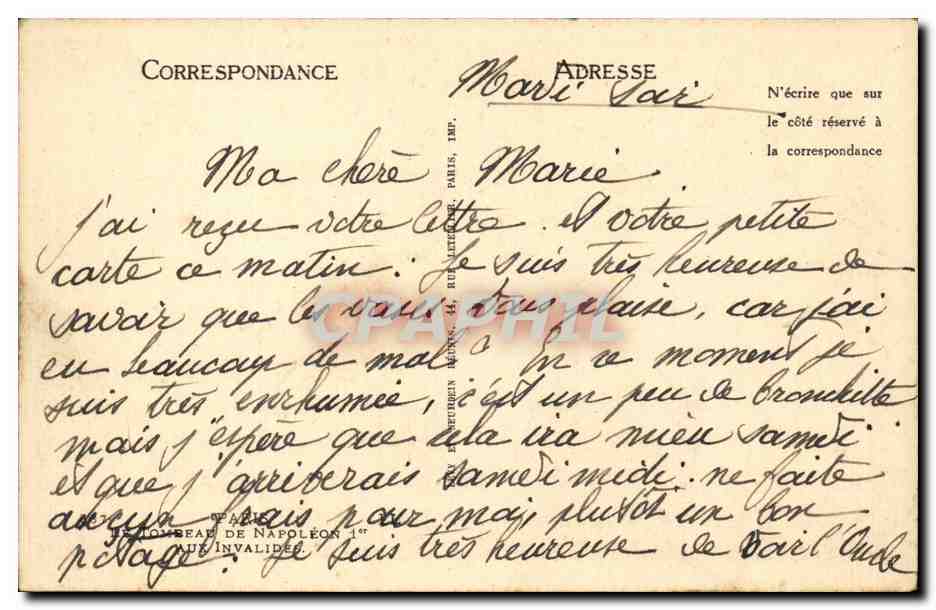 CORRESPONDANCE
ADRESSE
Mardi soir
N'écrire que sur
le côté réservé à
la correspondance
Ma chère Marie
j'ai reçu votre lettre et votre petite
carte ce matin. Je suis très heureuse de
savoir que les vous plaise, car j'ai
eu beaucoup de mal En ce moment je
suis très enrhumée, c'est un peu de bronchitte
mais j'espère que cela ira mieu samedi
et que j'arriverais samedi midi. ne faite
aucun frais pour moi, plutôt un bon
potage. Je suis très heureuse de voir l'Oncle
PARIS
LE TOMBEAU DE NAPOLÉON 1er
AUX INVALIDES.
NEURDEIN RÉUNIS, 44, RUE LETELLIER, PARIS, IMP.
CPAPHIL